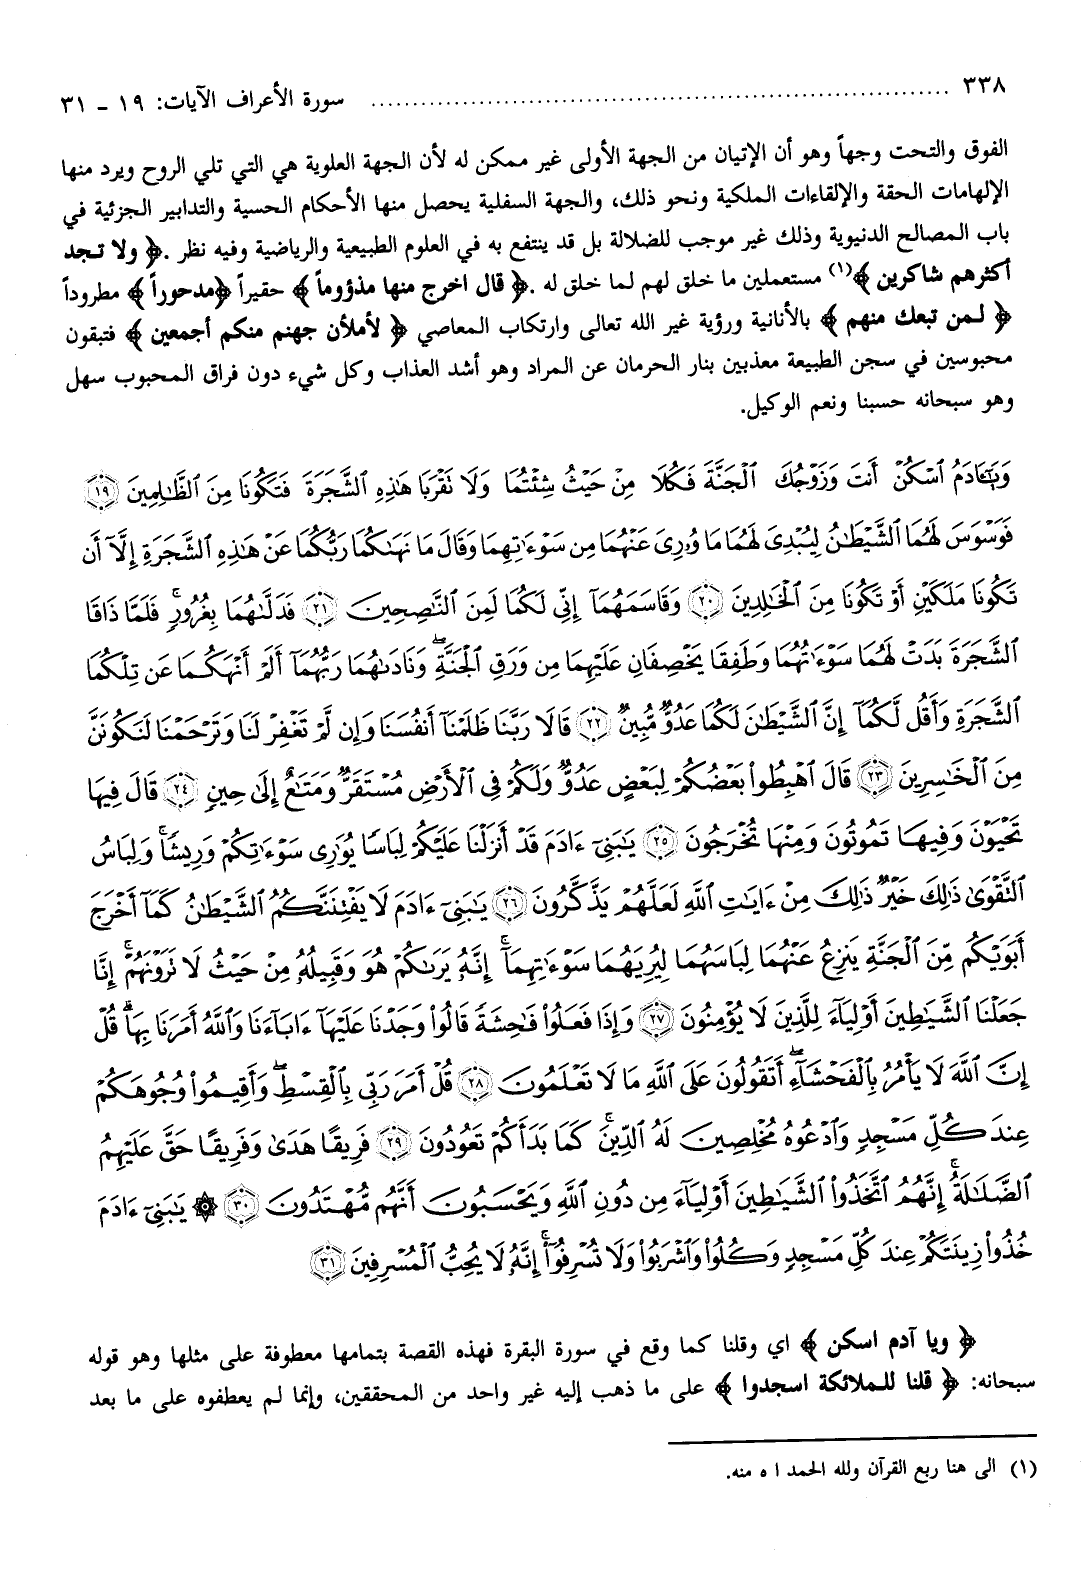 ٣٣٨ ........................................................ سورة الأعراف الآيات: ١٩ - ٣١
الفوق والتحت وجهاً وهو أن الإتيان من الجهة الأولى غير ممكن له لأن الجهة العلوية هي التي تلي الروح ويرد منها
الإلهامات الحقة والإلقاءات الملكية ونحو ذلك، والجهة السفلية يحصل منها الأحكام الحسية والتدابير الجزئية في
باب المصالح الدنيوية وذلك غير موجب للضلالة بل قد ينتفع به في العلوم الطبيعية والرياضية وفيه نظر .﴿ ولا تـجد
أكثرهم شاكرين ﴾(١) مستعملين ما خلق لهم لما خلق له .﴿ قال اخرج منها مذؤوماً ﴾ حقيراً ﴿مدحوراً ﴾ مطروداً
﴿ لـمن تبعك منهم ﴾ بالأنانية ورؤية غير الله تعالى وارتكاب المعاصي ﴿ لأملأن جهنم منكم أجمعين ﴾ فتبقون
محبوسين في سجن الطبيعة معذبين بنار الحرمان عن المراد وهو أشد العذاب وكل شيء دون فراق المحبوب سهل
وهو سبحانه حسبنا ونعم الوكيل.
وَيَٰٓـَٔادَمُ ٱسْكُنْ أَنتَ وَزَوْجُكَ ٱلْجَنَّةَ فَكُلَا مِنْ حَيْثُ شِئْتُمَا وَلَا تَقْرَبَا هَٰذِهِ ٱلشَّجَرَةَ فَتَكُونَا مِنَ ٱلظَّٰلِمِينَ ١٩
فَوَسْوَسَ لَهُمَا ٱلشَّيْطَٰنُ لِيُبْدِىَ لَهُمَا مَا وُۥرِىَ عَنْهُمَا مِن سَوْءَٰتِهِمَا وَقَالَ مَا نَهَىٰكُمَا رَبُّكُمَا عَنْ هَٰذِهِ ٱلشَّجَرَةِ إِلَّآ أَن
تَكُونَا مَلَكَيْنِ أَوْ تَكُونَا مِنَ ٱلْخَٰلِدِينَ ٢٠ وَقَاسَمَهُمَآ إِنِّى لَكُمَا لَمِنَ ٱلنَّٰصِحِينَ ٢١ فَدَلَّىٰهُمَا بِغُرُورٍۚ فَلَمَّا ذَاقَا
ٱلشَّجَرَةَ بَدَتْ لَهُمَا سَوْءَٰتُهُمَا وَطَفِقَا يَخْصِفَانِ عَلَيْهِمَا مِن وَرَقِ ٱلْجَنَّةِۖ وَنَادَىٰهُمَا رَبُّهُمَآ أَلَمْ أَنْهَكُمَا عَن تِلْكُمَا
ٱلشَّجَرَةِ وَأَقُل لَّكُمَآ إِنَّ ٱلشَّيْطَٰنَ لَكُمَا عَدُوٌّ مُّبِينٌ ٢٢ قَالَا رَبَّنَا ظَلَمْنَآ أَنفُسَنَا وَإِن لَّمْ تَغْفِرْ لَنَا وَتَرْحَمْنَا لَنَكُونَنَّ
مِنَ ٱلْخَٰسِرِينَ ٢٣ قَالَ ٱهْبِطُوا۟ بَعْضُكُمْ لِبَعْضٍ عَدُوٌّ وَلَكُمْ فِى ٱلْأَرْضِ مُسْتَقَرٌّ وَمَتَٰعٌ إِلَىٰ حِينٍ ٢٤ قَالَ فِيهَا
تَحْيَوْنَ وَفِيهَا تَمُوتُونَ وَمِنْهَا تُخْرَجُونَ ٢٥ يَٰبَنِىٓ ءَادَمَ قَدْ أَنزَلْنَا عَلَيْكُمْ لِبَاسًا يُوَٰرِى سَوْءَٰتِكُمْ وَرِيشًاۚ وَلِبَاسُ
ٱلتَّقْوَىٰ ذَٰلِكَ خَيْرٌۚ ذَٰلِكَ مِنْ ءَايَٰتِ ٱللَّهِ لَعَلَّهُمْ يَذَّكَّرُونَ ٢٦ يَٰبَنِىٓ ءَادَمَ لَا يَفْتِنَنَّكُمُ ٱلشَّيْطَٰنُ كَمَآ أَخْرَجَ
أَبَوَيْكُم مِّنَ ٱلْجَنَّةِ يَنزِعُ عَنْهُمَا لِبَاسَهُمَا لِيُرِيَهُمَا سَوْءَٰتِهِمَآۚ إِنَّهُۥ يَرَىٰكُمْ هُوَ وَقَبِيلُهُۥ مِنْ حَيْثُ لَا تَرَوْنَهُمْۗ إِنَّا
جَعَلْنَا ٱلشَّيَٰطِينَ أَوْلِيَآءَ لِلَّذِينَ لَا يُؤْمِنُونَ ٢٧ وَإِذَا فَعَلُوا۟ فَٰحِشَةً قَالُوا۟ وَجَدْنَا عَلَيْهَآ ءَابَآءَنَا وَٱللَّهُ أَمَرَنَا بِهَاۗ قُلْ
إِنَّ ٱللَّهَ لَا يَأْمُرُ بِٱلْفَحْشَآءِۖ أَتَقُولُونَ عَلَى ٱللَّهِ مَا لَا تَعْلَمُونَ ٢٨ قُلْ أَمَرَ رَبِّى بِٱلْقِسْطِۖ وَأَقِيمُوا۟ وُجُوهَكُمْ
عِندَ كُلِّ مَسْجِدٍ وَٱدْعُوهُ مُخْلِصِينَ لَهُ ٱلدِّينَۚ كَمَا بَدَأَكُمْ تَعُودُونَ ٢٩ فَرِيقًا هَدَىٰ وَفَرِيقًا حَقَّ عَلَيْهِمُ
ٱلضَّلَٰلَةُۗ إِنَّهُمُ ٱتَّخَذُوا۟ ٱلشَّيَٰطِينَ أَوْلِيَآءَ مِن دُونِ ٱللَّهِ وَيَحْسَبُونَ أَنَّهُم مُّهْتَدُونَ ٣٠ ۞ يَٰبَنِىٓ ءَادَمَ
خُذُوا۟ زِينَتَكُمْ عِندَ كُلِّ مَسْجِدٍ وَكُلُوا۟ وَٱشْرَبُوا۟ وَلَا تُسْرِفُوٓا۟ۚ إِنَّهُۥ لَا يُحِبُّ ٱلْمُسْرِفِينَ ٣١
﴿ ويا آدم اسكن ﴾ اي وقلنا كما وقع في سورة البقرة فهذه القصة بتمامها معطوفة على مثلها وهو قوله
سبحانه: ﴿ قلنا للـملائكة اسجدوا ﴾ على ما ذهب إليه غير واحد من المحققين، وإنما لم يعطفوه على ما بعد
(١) الى هنا ربع القرآن ولله الحمد ا ه منه.